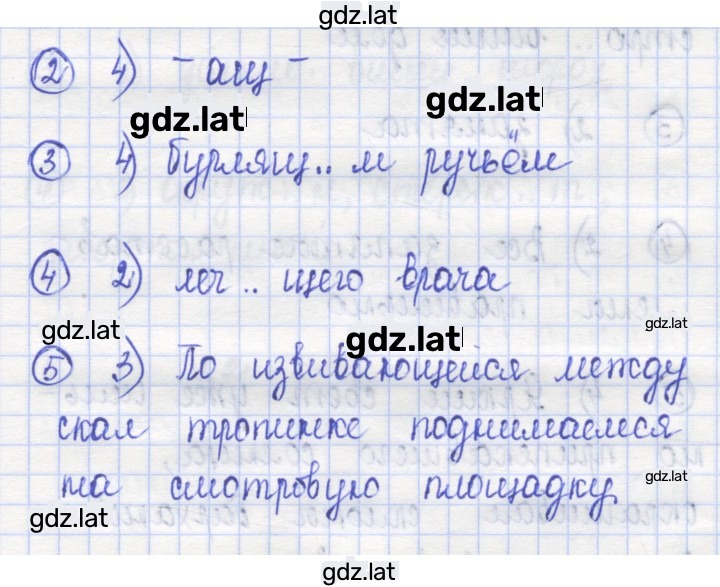 gdz.lat
② 4) -ащ-
gdz.lat
gdz.lat
③ 4) бурлящ..м ручьём
④ 2) леч..щего врача
gdz.lat
gdz.lat
gdz.lat
⑤ 3) По извивающейся между
скал тропинке поднимаемся
на смотровую площадку
gdz.lat
gdz.lat
gdz.lat